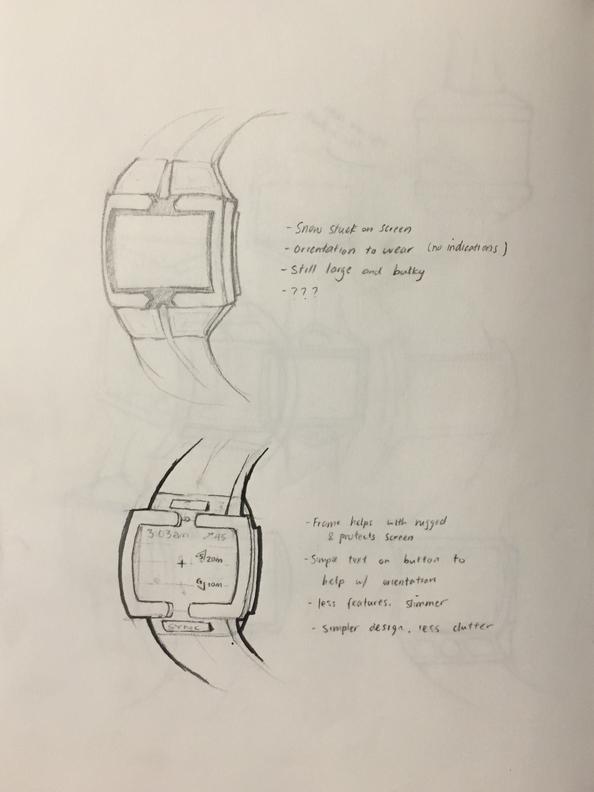 - Snow stuck on screen
- Orientation to wear (no indications)
- Still large and bulky
- ???
3:03am ↗45
20m
10m
SYNC
- Frame helps with rugged
& protects screen
- Simple text on button to
help w/ orientation
- less features. slimmer
- simpler design. less clutter